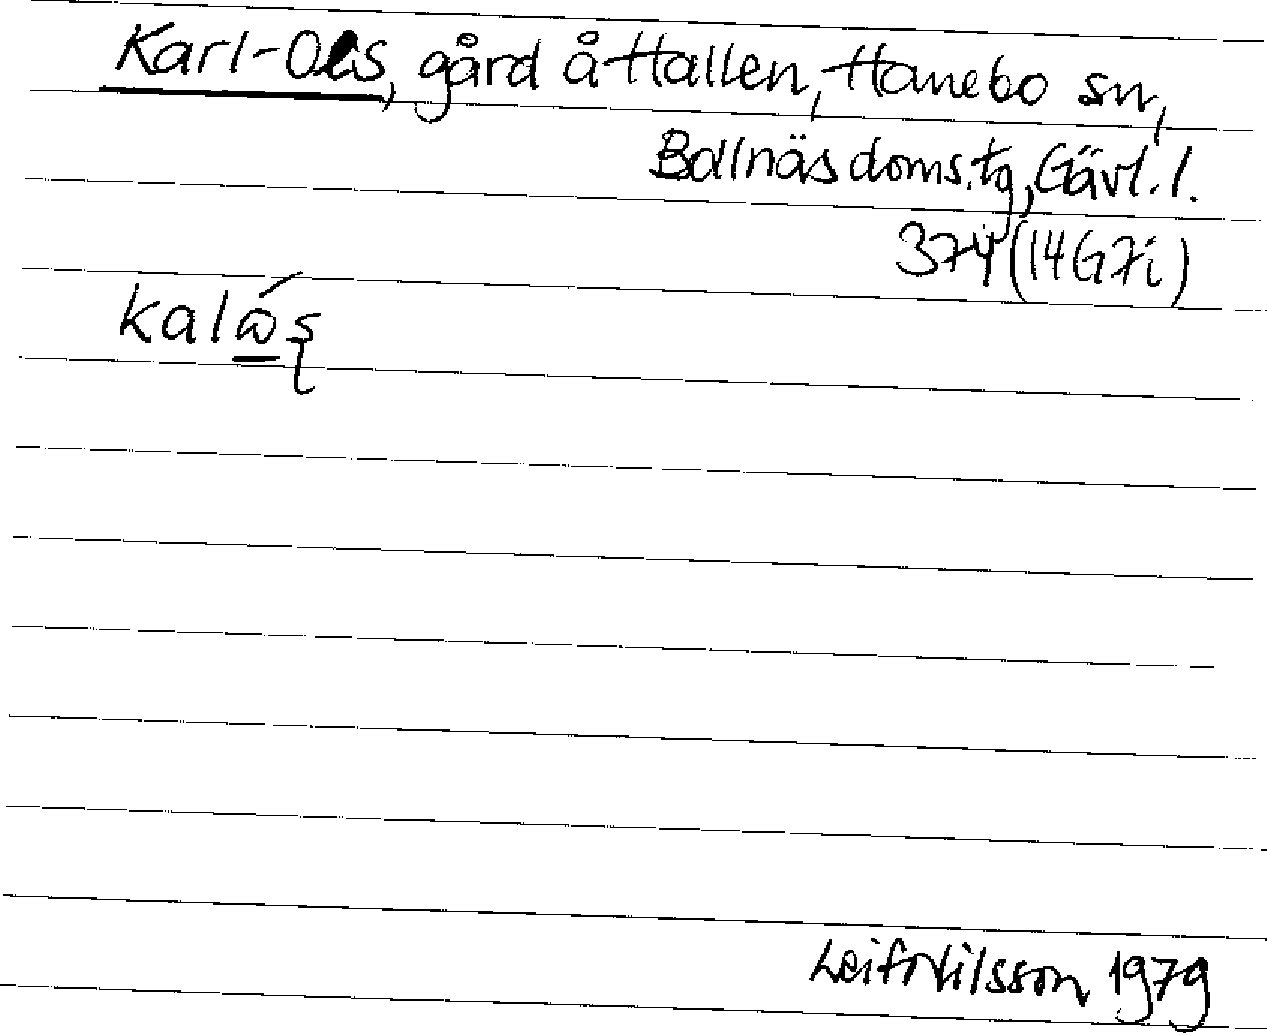 Karl-Ols, gård å Hallen, Hanebo sn,
Bollnäs doms.tg, Gävl. l.
374 (14G7i)
Leif Nilsson 1979